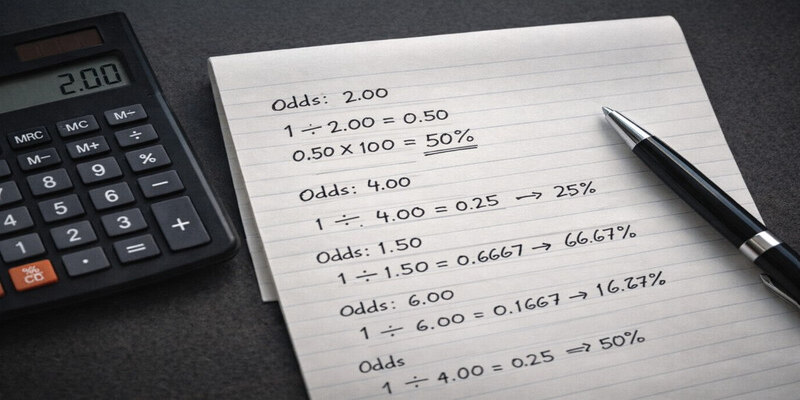 2.00
MRC
MC
M−
M−
M+
÷
8
9
%
5
6
−
4
2
3
+
1
·
=
%
CC
Odds: 2.00
1 ÷ 2.00 = 0.50
0.50 × 100 = 50%
Odds: 4.00
1 ÷. 4.00 = 0.25 → 25%
Odds: 1.50
1 ÷ 1.50 = 0.6667 → 66.67%
Odds: 6.00
1 ÷ 6.00 = 0.1667 → 16.67%
Odds
1 ÷ 4.00 = 0.25 ⇒ 50%